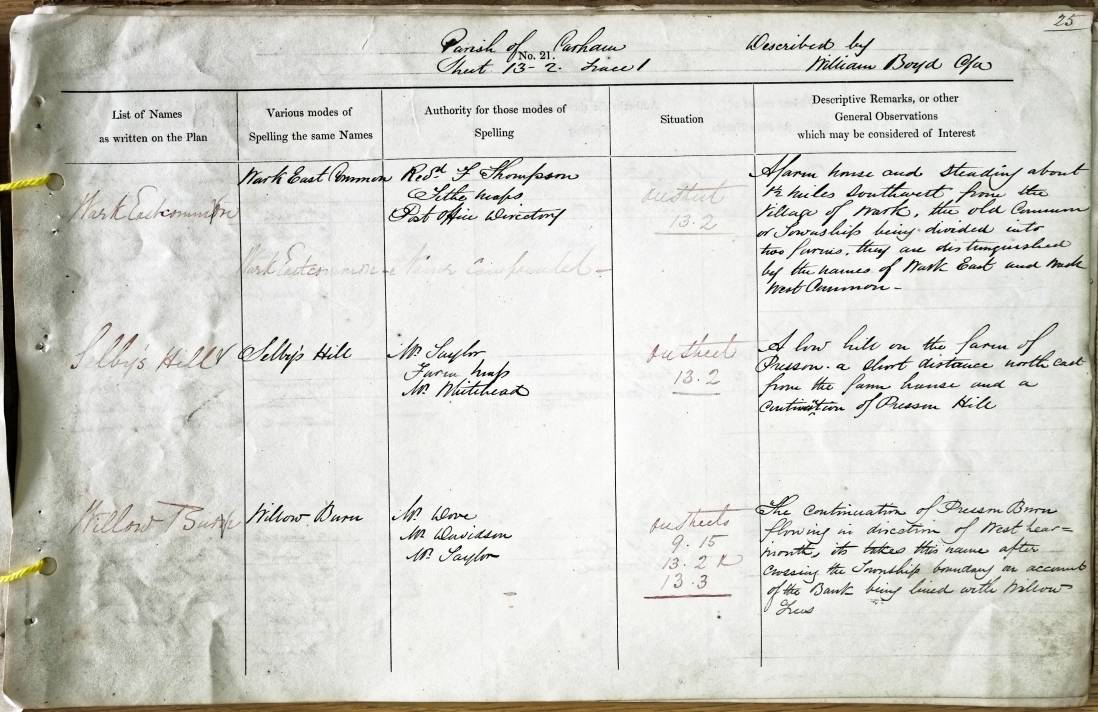 25
Parish of Carham
No. 21.
Sheet 13-2. Trace 1
Described by
William Boyd C/a
List of Names
as written on the Plan
Various modes of
Spelling the same Names
Authority for those modes of
Spelling
Situation
Descriptive Remarks, or other
General Observations
which may be considered of Interest
Wark Eastcommon
Wark East Common
Wark Eastcommon - Name compounded -
Revd. F Thompson
Tithe maps
Post Office Directory
on sheet
13.2
A farm house and steading about
1½ miles Southwest from the
Village of Wark, the old Common
or Township being divided into
two farms, they are distinguished
by the names of Wark East and Wark
West Common -
Selby's Hill
Selby's Hill
Mr. Taylor
Farm map
Mr. Whitehead
on sheet
13.2
A low hill on the farm of
Presson. a short distance north east
from the farm house and a
continuation of Presson Hill
Willow Burn
Willow Burn
Mr. Dove
Mr. Davidson
Mr. Taylor
on sheets
9.15
13.2
13.3
The continuation of Presson Burn
flowing in direction of West Lear=
mouth, its takes this name after
crossing the Township boundary on account
of the Bank being lined with Willow
Trees